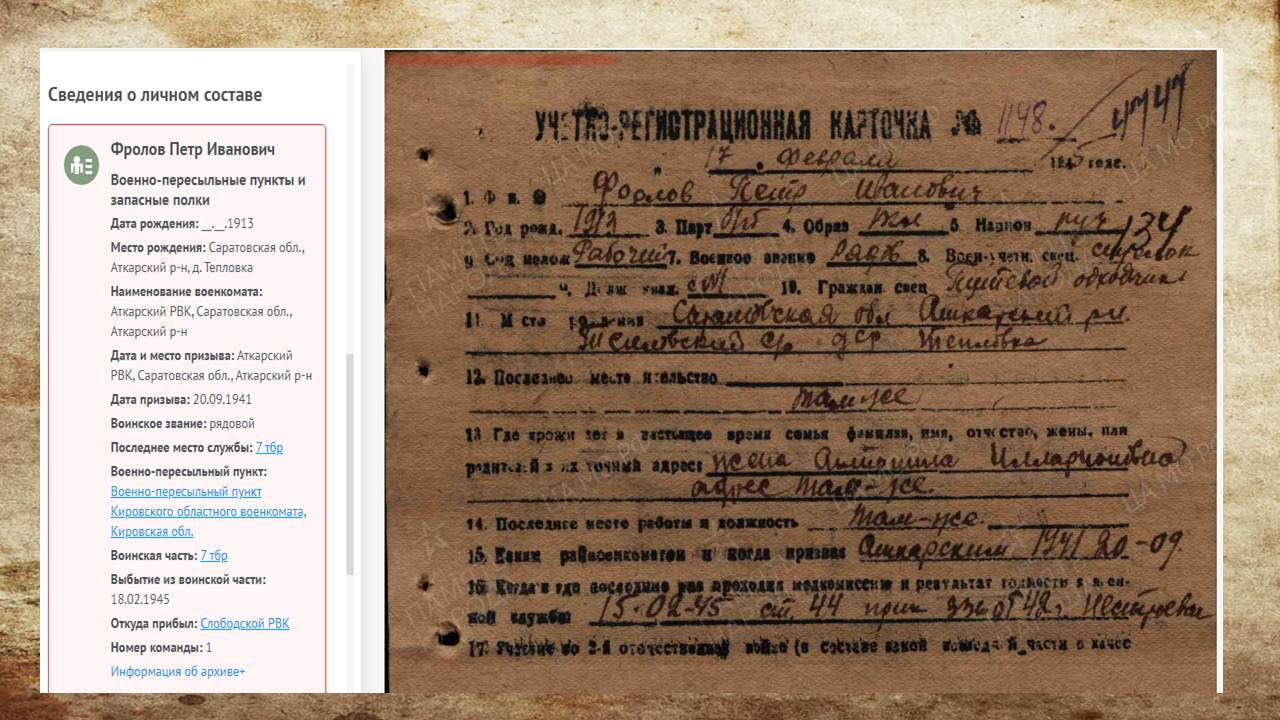 Сведения о личном составе
Фролов Петр Иванович
Военно-пересыльные пункты и
запасные полки
Дата рождения: __.__.1913
Место рождения: Саратовская обл.,
Аткарский р-н, д. Тепловка
Наименование военкомата:
Аткарский РВК, Саратовская обл.,
Аткарский р-н
Дата и место призыва: Аткарский
РВК, Саратовская обл., Аткарский р-н
Дата призыва: 20.09.1941
Воинское звание: рядовой
Последнее место службы: 7 тбр
Военно-пересыльный пункт:
Военно-пересыльный пункт
Кировского областного военкомата,
Кировская обл.
Воинская часть: 7 тбр
Выбытие из воинской части:
18.02.1945
Откуда прибыл: Слободской РВК
Номер команды: 1
Информация об архиве+
УЧЕТНО-РЕГИСТРАЦИОННАЯ КАРТОЧКА № 1148. 4747
17 февраля 194 года.
1. Ф и. о Фролов Петр Иванович
2. Год рожд. 1913 3. Парт б/п 4. Образ 5. Национ рус 134
Соц полож Рабочий 7. Военное звание Ряд 8. Воен-учетн. спец. стрелок
10. Граждан спец Путевой обходчик
11. Место рождения Саратовская обл Аткарский рн.
Тепловский с/с дер Тепловка
12. Последнее место жительство
там-же
13 Где проживает в настоящее время семья фамилия, имя, отчество, жены, или
родителей и их точный адрес жена Илларионовна
адрес там-же.
14. Последнее место работы и должность там-же.
15. Каким райвоенкоматом и когда призван Аткарским 1941 20-09
16. Когда и где последние раз проходил медкомиссию и результат годности к воен-
ной службе 15-02-45 ст. 44 прик 336 от 42г.
17. Участие во 2-й отечественной войне (в составе какой команды и части в качес